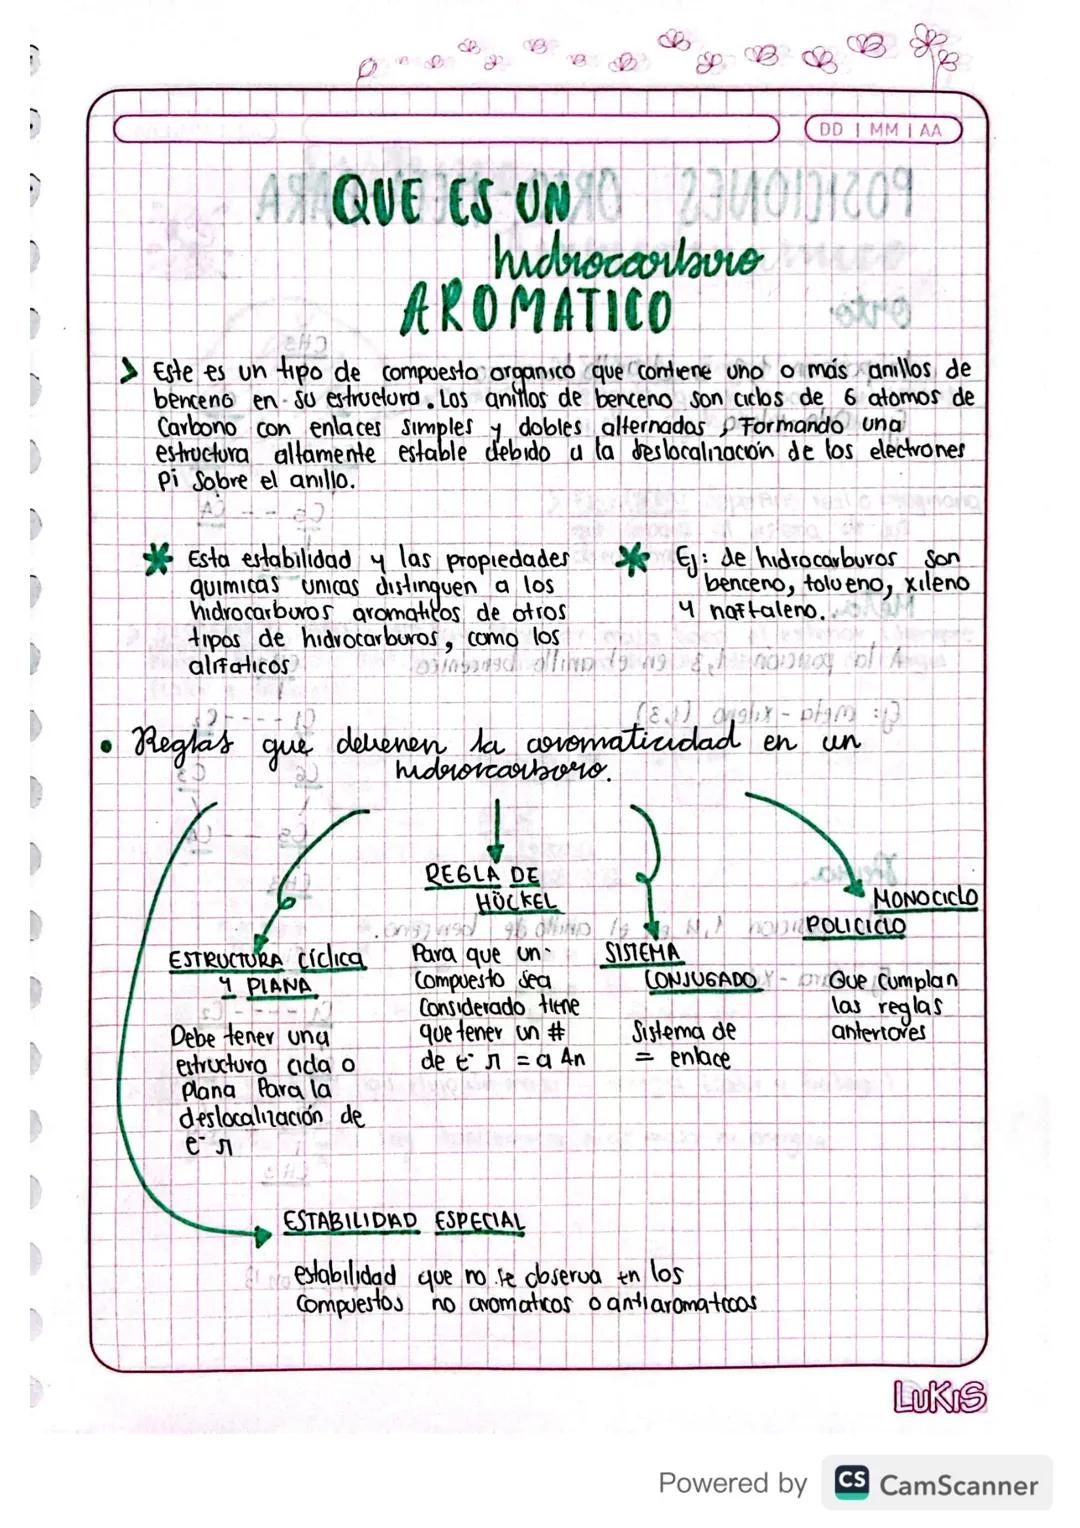 DD | MM | AA
QUE ES UN
hidrocarburo
AROMATICO
> Este es un tipo de compuesto organico que contiene uno o más anillos de
benceno en su estructura. Los anillos de benceno son ciclos de 6 atomos de
Carbono con enlaces simples y dobles alternados, Formando una
estructura altamente estable debido a la deslocalización de los electrones
Pi Sobre el anillo.
* Esta estabilidad y las propiedades
quimicas unicas distinguen a los
hidrocarburos aromaticos de otros
tipos de hidrocarburos, como los
alifaticos
* Ej: de hidrocarburos son
benceno, tolueno, xileno
y naftaleno.
• Reglas que devenen la aromaticidad en un
hidrorcarboro.
ESTRUCTURA cíclica
Y PLANA
Debe tener una
estructura cicla o
plana Para la
deslocalización de
e⁻ π
REGLA DE
HÜCKEL
Para que un
Compuesto sea
Considerado tiene
que tener un #
de e⁻ π = a 4n
SISTEMA
CONJUGADO
Sistema de
= enlace
MONOCICLO
POLICICLO
Que Cumplan
las reglas
anteriores
ESTABILIDAD ESPECIAL
estabilidad que no se observa en los
Compuestos no aromaticos o antiaromaticos
LUKIS
Powered by CS CamScanner